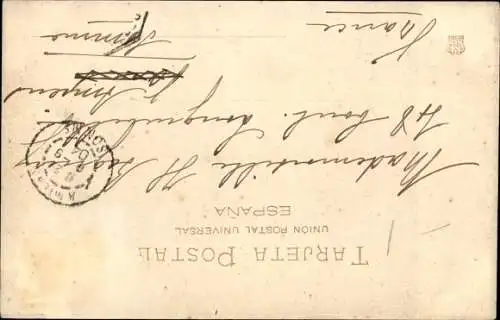 TARJETA POSTAL
UNIÓN POSTAL UNIVERSAL
ESPAÑA
Mademoiselle H.
48 boul. Longueville
Amiens
Somme
France